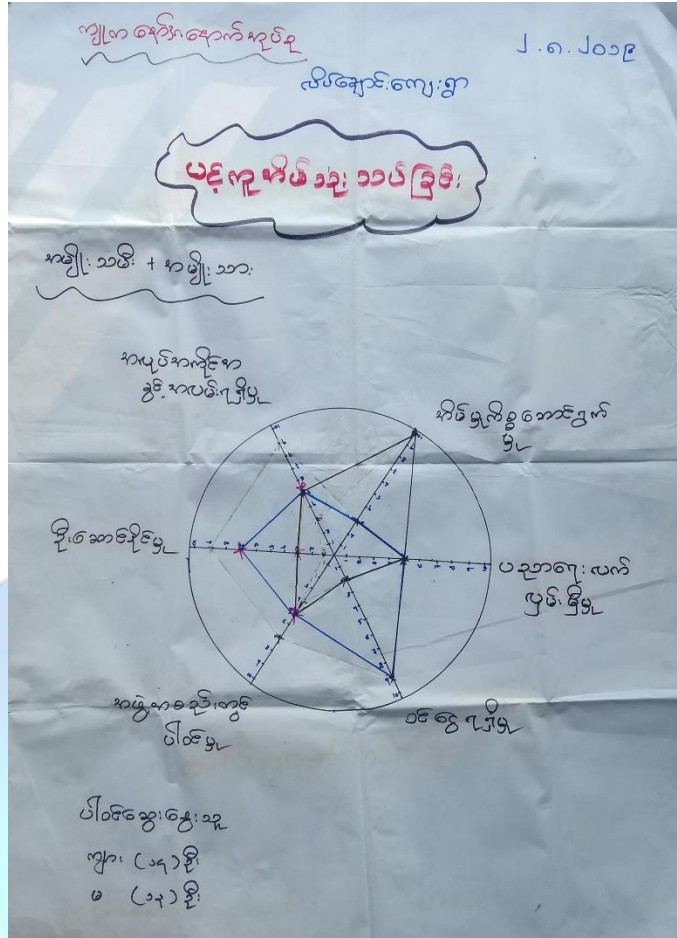 ၂.၈.၂၀၁၉
လိပ်ချောင်းကျေးရွာ
ပင့်ကူအိမ်သုံးသပ်ခြင်း
အမျိုးသမီး + အမျိုးသား
အလုပ်အကိုင်အ
ခွင့်အလမ်းရရှိမှု
အိမ်မှုကိစ္စဆောင်ရွက်
မှု
ဦးဆောင်နိုင်မှု
ပညာရေးလက်
လှမ်းမှီမှု
အဖွဲ့အစည်းတွင်
ပါဝင်မှု
ဝင်ငွေရရှိမှု
ပါဝင်ဆွေးနွေးသူ
ကျား (၁၄) ဦး
မ (၁၃) ဦး